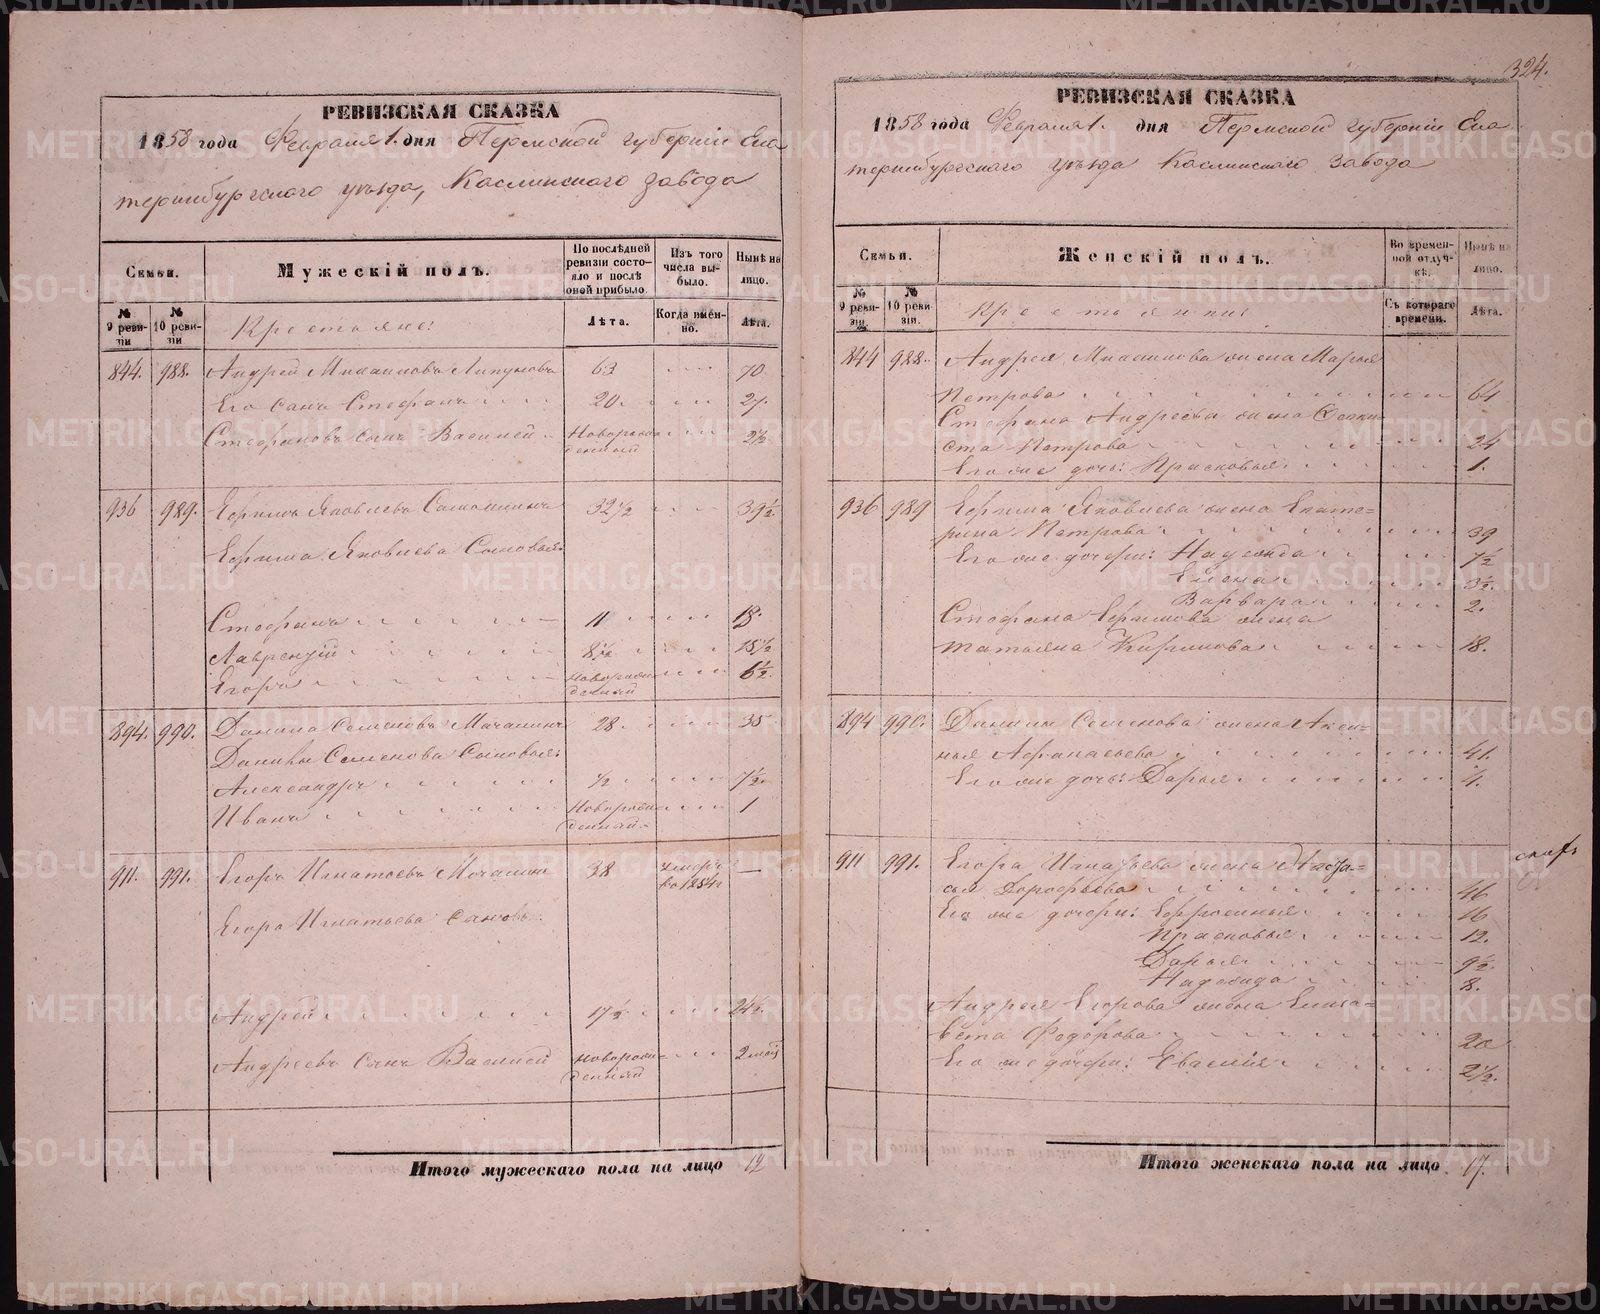 324.
РЕВИЗСКАЯ СКАЗКА
1858 года Февраля 1. дня Пермской губернiи Ека
теринбургскаго уѣзда, Каслинскаго завода
Семьи.
Мужескiй полъ.
По послѣдней ревизiи состояло и послѣ оной прибыло.
Изъ того числа выбыло.
Нынѣ на лицо.
№ 9 ревизiи
№ 10 ревизiи
Крестьяне:
Лѣта.
Когда именно.
Лѣта.
844. 988. Андрей Михаиловъ 63 70
Его сынъ Стефанъ 20. 27.
Стефановъ сынъ Василiй Новорожденный 2½
936 989. Ефимъ Яковлевъ 32½ 39½
Ефима Яковлева Сыновья:
Стефанъ 11 18.
Лаврентiй 8½ 15½
Егоръ Новорожденный 6½.
894. 990. Данила Семеновъ Мочалинъ 28. 35
Данилы Семенова Сыновья:
Александръ ½ 7½.
Иванъ Новорожденный 1
911. 991. Егоръ Игнатьевъ Мочалинъ 38 умеръ въ 1854г —
Егора Игнатьева Сыновья:
Андрей 17½ 24½.
Андреевъ сынъ Василiй Новорожденный 2 мѣс
Итого мужескаго пола на лицо 12
РЕВИЗСКАЯ СКАЗКА
1858 года Февраля 1. дня Пермской губернiи Ека
теринбургскаго уѣзда Каслинскаго завода
Семьи.
Женскiй полъ.
Во временной отлучкѣ.
Нынѣ на лицо.
№ 9 ревизiи.
№ 10 ревизiи.
Крестьянки:
Съ котораго времени.
Лѣта.
844 988. Андрея Михаилова жена Марья
Петрова 64
Стефана Андреева жена Феокти
ста Петрова 24
Его же дочь: Прасковья 1.
936 989 Ефима Яковлева жена Екате=
рина Петрова 39
Его же дочери: Надежда 7½
Елена 3½.
Варвара 2.
Стефана Ефимова жена
Татьяна Кирилова 18.
894 990. Данилы Семенова жена Аксинь=
нья Афанасьева 41.
Его же дочь: Дарья 4.
911 991. Егора Игнатьева жена Наста=
сья Дорофѣева 46
Его же дочери: Ефросинья 16
Прасковья 12.
Дарья 9½
Надежда 8.
Андрея Егорова жена Елиза=
вета Федорова 20
Его же дочери: 2½.
Итого женскаго пола на лицо 17.
METRIKI.GASO-URAL.RU